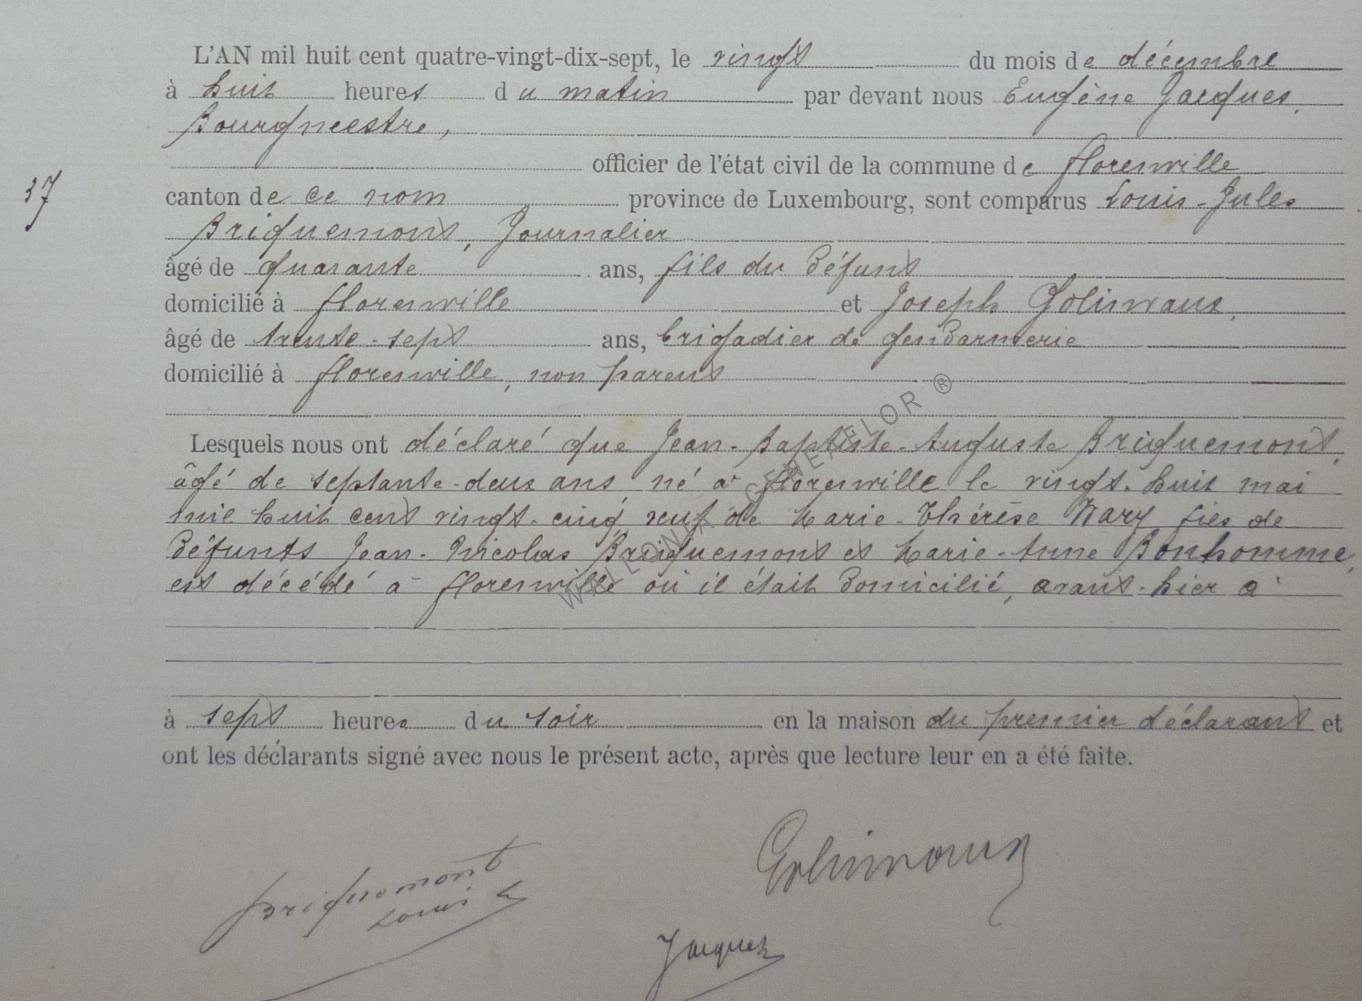 L'AN mil huit cent quatre-vingt-dix-sept, le vingt du mois de décembre
à huit heures du matin par devant nous Eugène Jacques,
Bourgmestre,
officier de l'état civil de la commune de florenville
37
canton de ce nom province de Luxembourg, sont comparus Louis-Jules
Briquemont, Journalier
âgé de quarante ans, fils du défunt
domicilié à florenville et Joseph Golinvaux,
âgé de trente-sept ans, brigadier de gendarmerie
domicilié à florenville, non parent
Lesquels nous ont déclaré que Jean-Baptiste-Auguste Briquemont,
âgé de septante-deux ans, né à florenville le vingt-huit mai
mil huit cent vingt-cinq, veuf de Marie-Thérèse Wary, fils de
défunts Jean-Nicolas Briquemont et Marie-Anne Bonhomme,
est décédé à florenville où il était domicilié, avant-hier à
à sept heures du soir en la maison du premier déclarant et
ont les déclarants signé avec nous le présent acte, après que lecture leur en a été faite.
Briquemont
Louis
Golinvaux
Jacques